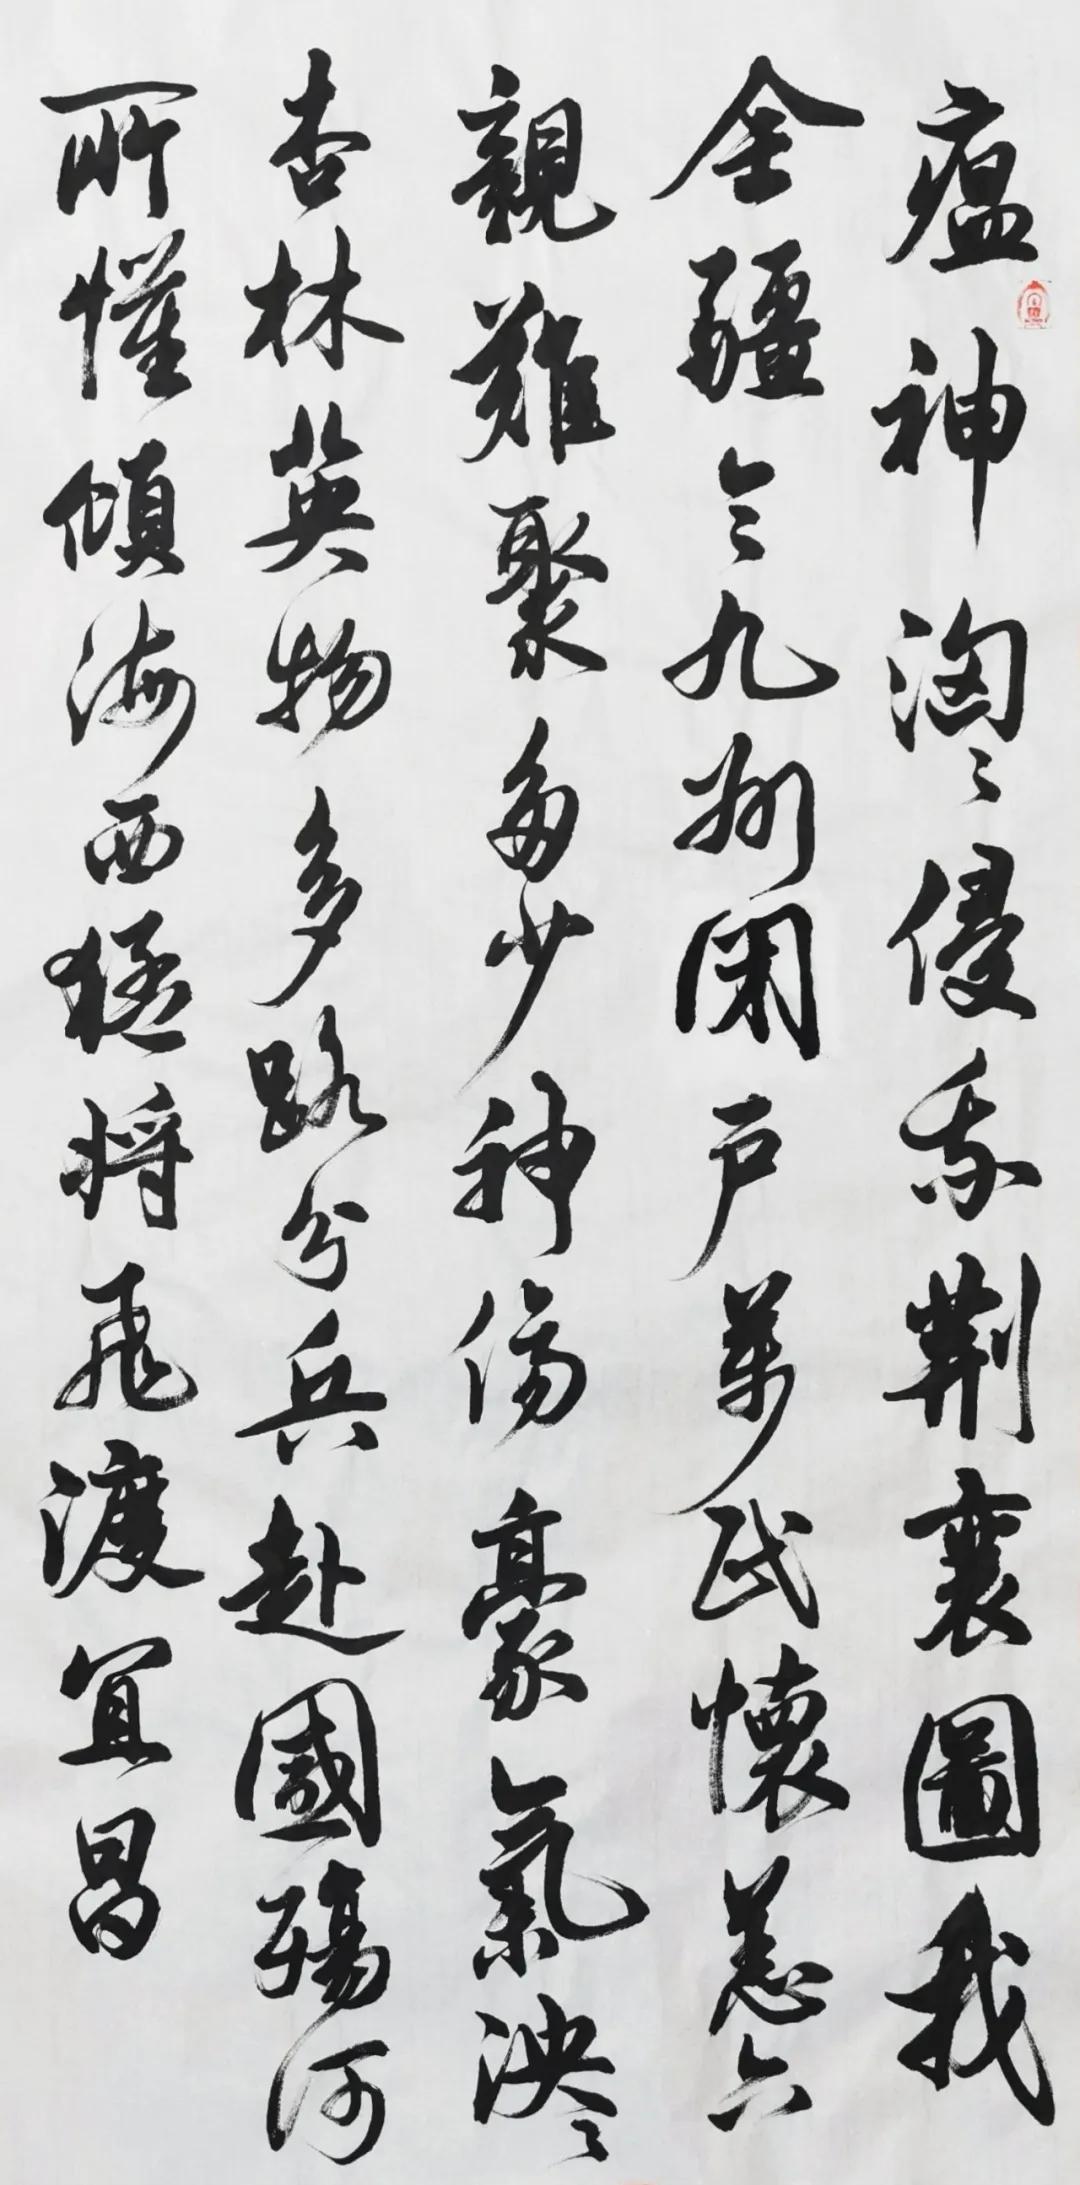 瘟神洶〻侵我荊襄圖我
全疆令九州閉戶萬民懷恙六
親難聚多少神傷豪氣泱〻
杏林英物多路分兵赴國殤何
所懼傾海西猛將飛渡宜昌